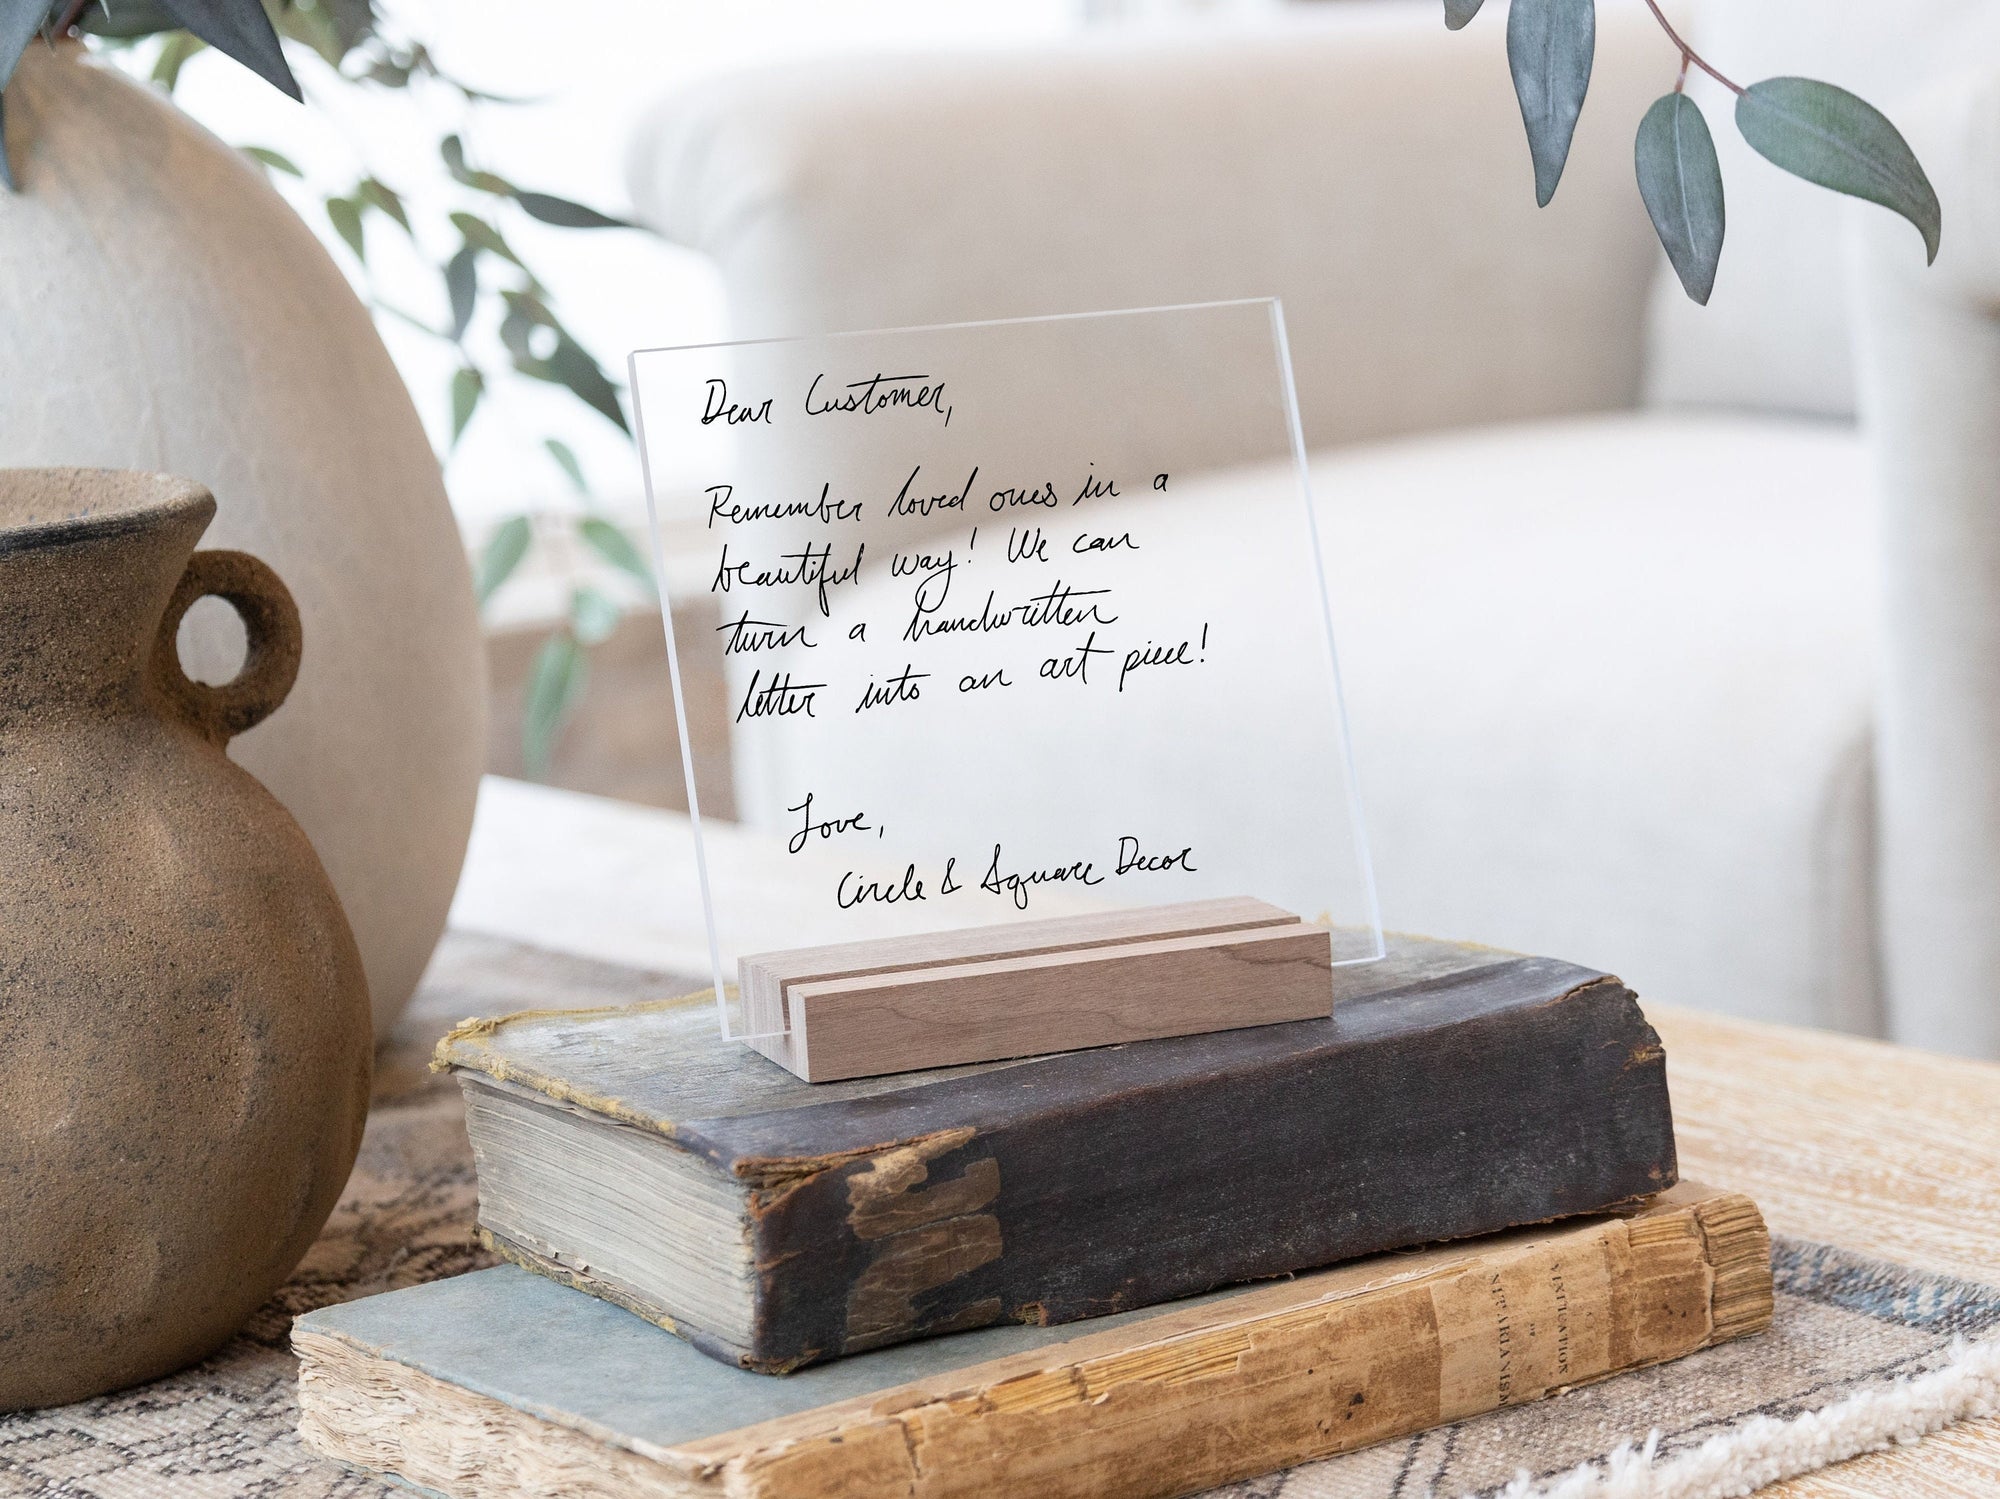 Dear Customer,
Remember loved ones in a
beautiful way! We can
turn a handwritten
letter into an art piece!
Love,
Circle & Square Decor
VINDICATION
OF